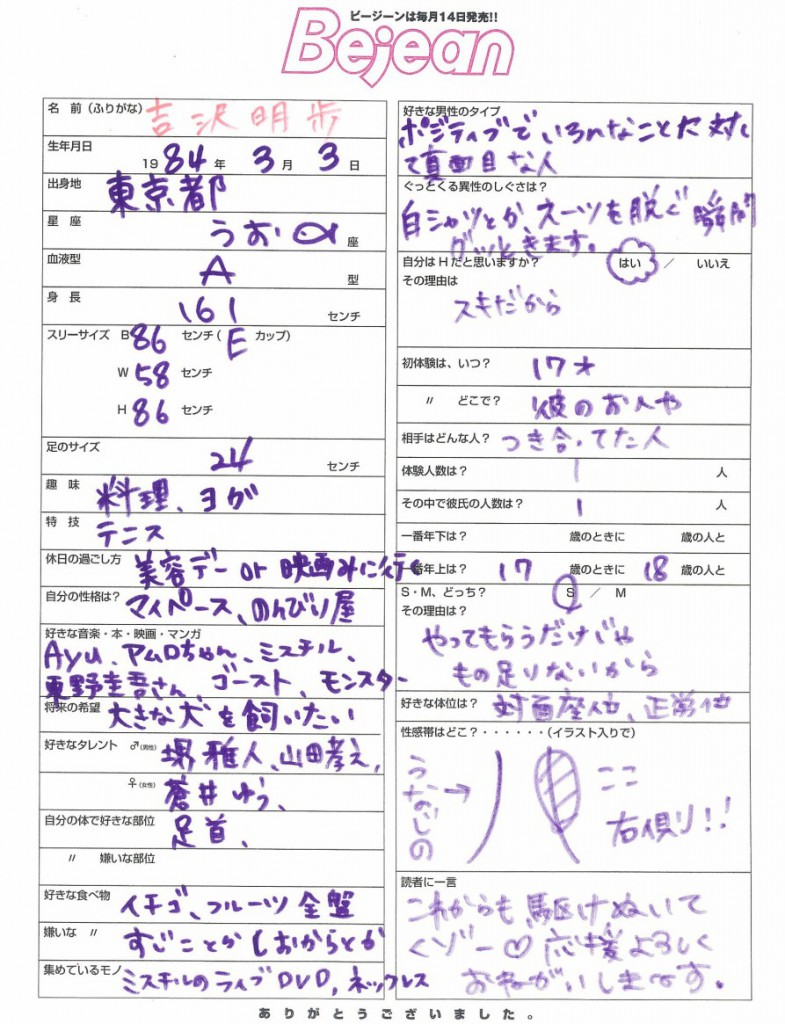 ビージーンは毎月14日発売!!
Bejean
名 前(ふりがな) 吉沢明歩
生年月日
1984年 3月 3日
出身地 東京都
星 座 うお座
血液型 A型
身 長 161センチ
スリーサイズ B 86 センチ(Eカップ)
W 58 センチ
H 86 センチ
足のサイズ 24センチ
趣 味 料理、ヨガ
特 技 テニス
休日の過ごし方 美容デー or 映画みに行く
自分の性格は? マイペース、のんびり屋
好きな音楽・本・映画・マンガ
Ayu、アムロちゃん、ミスチル、
東野圭吾さん、ゴースト、モンスター
将来の希望 大きな犬を飼いたい
好きなタレント ♂(男性) 堺雅人、山田孝之、
♀(女性) 蒼井ゆう、
自分の体で好きな部位 足首、
〃 嫌いな部位
好きな食べ物 イチゴ、フルーツ全盤
嫌いな 〃 すじことかしおからとか
集めているモノ ミスチルのライブDVD, ネックレス
好きな男性のタイプ
ポジティブでいろんなことに対し
て真面目な人
ぐっとくる異性のしぐさは?
白シャツとか、スーツを脱ぐ瞬間
グッときます。
自分はHだと思いますか? はい / いいえ
その理由は
スキだから
初体験は、いつ? 17才
〃 どこで? 彼のお人や
相手はどんな人? つき合ってた人
体験人数は? 1人
その中で彼氏の人数は? 1人
一番年下は? 歳のときに 歳の人と
一番年上は? 17歳のときに 18歳の人と
S・M、どっち? S / M
その理由は?
やってもらうだけじゃ
もの足りないから
好きな体位は? 対面座位、正常位
性感帯はどこ?・・・・・・(イラスト入りで)
うなじの→
ここ
右側り!!
読者に一言
これからも駆けぬいて
くゾー♡応援よろしく
おねがいします。
ありがとうございました。